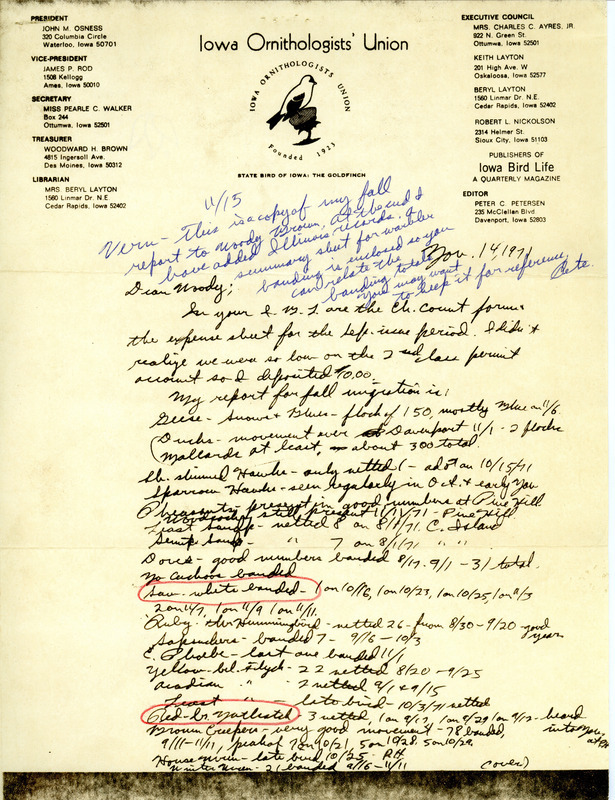 PRESIDENT
JOHN M. OSNESS
320 Columbia Circle
Waterloo, Iowa 50701
VICE-PRESIDENT
JAMES P. ROD
1508 Kellogg
Ames, Iowa 50010
SECRETARY
MISS PEARLE C. WALKER
Box 244
Ottumwa, Iowa 52501
TREASURER
WOODWARD H. BROWN
4815 Ingersoll Ave.
Des Moines, Iowa 50312
LIBRARIAN
MRS. BERYL LAYTON
1560 Linmar Dr. N.E.
Cedar Rapids, Iowa 52402
Iowa Ornithologists' Union
IOWA ORNITHOLOGISTS UNION
Founded 1923
STATE BIRD OF IOWA: THE GOLDFINCH
EXECUTIVE COUNCIL
MRS. CHARLES C. AYRES, JR.
922 N. Green St.
Ottumwa, Iowa 52501
KEITH LAYTON
201 High Ave. W
Oskaloosa, Iowa 52577
BERYL LAYTON
1560 Linmar Dr. N.E.
Cedar Rapids, Iowa 52402
ROBERT L. NICKOLSON
2314 Helmer St.
Sioux City, Iowa 51103
PUBLISHERS OF
Iowa Bird Life
A QUARTERLY MAGAZINE
EDITOR
PETER C. PETERSEN
235 McClellan Blvd
Davenport, Iowa 52803
11/15
Vern - This is a copy of my fall
report to Woody Brown. At the end I
have added Illinois records. A
summary sheet for warbler
banding is enclosed so you
can relate the
banding totals
You may want
to keep it for reference.
Pete
Nov. 14, 1971
Dear Woody;
In your are the Ch. Count forms
the expense sheet for the Sep. issue period. I didn't
realize we were so low on the 2nd class permit
account so I deposited $10.00.
My report for fall migration is:
Geese - Snows & Blues - flock of 150, mostly Blue on 11/6
Ducks - movement over Davenport 11/1 - 2 flocks
Mallards at least, about 300 total
Sh. shinned Hawks - only netted 1 - ad ♂ on 10/15/71
Sparrow Hawks - seen regularly in Oct. & early Nov
Pheasants present in good numbers at Pine Hill
Woodcock still present 11/11/71 - Pine Hill
Least Sandp - netted 8 on 8/1/71 C. Island
Semip Sandp - " 7 on 8/1/71 " "
Doves - good numbers banded 8/17-9/1 - 31 total
No Cuckoos banded
Saw-whets banded - 1 on 10/16, 1 on 10/23, 1 on 10/25, 1 on 11/3
2 on 11/7, 1 on 11/9 1 on 11/11.
Ruby-thr Hummingbird - netted 26 - from 8/30-9/20 - good year
Sapsuckers - banded 7 - 9/16 - 10/3
E. Phoebe - last one banded 11/1
Yellow-bel. Flych - 22 netted 8/20 - 9/25
Acadian " " 2 netted 9/1 & 9/15
Least " - late bird - 10/3/71 netted
Red-br. Nuthatch - 3 netted, 1 on 9/17, 1 on 9/29 1 on 9/12 - heard into Nov.
Brown Creepers - very good movement - 78 banded,
9/11-11/11, peak of 7 on 10/21, 5 on 10/28, 5 on 10/29
House Wren - late bird 10/25 - P.H.
Winter Wren - 21 banded 9/16 - 11/11
(over)